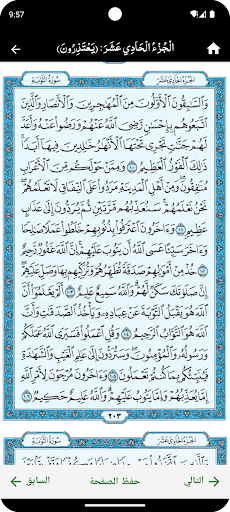 9:57
الْجُزْءُ الْحَادِي عَشَرَ: (يَعْتَذِرُونَ)
سُورَةُ التَّوْبَةِ الجُزءُ الحَادِي عَشَرَ
وَالسَّابِقُونَ الْأَوَّلُونَ مِنَ الْمُهَاجِرِينَ وَالْأَنصَارِ وَالَّذِينَ
اتَّبَعُوهُم بِإِحْسَانٍ رَّضِيَ اللَّهُ عَنْهُمْ وَرَضُوا عَنْهُ وَأَعَدَّ
لَهُمْ جَنَّاتٍ تَجْرِي تَحْتَهَا الْأَنْهَارُ خَالِدِينَ فِيهَا أَبَدًا
ذَٰلِكَ الْفَوْزُ الْعَظِيمُ ١٠٠ وَمِمَّنْ حَوْلَكُم مِّنَ الْأَعْرَابِ
مُنَافِقُونَ وَمِنْ أَهْلِ الْمَدِينَةِ مَرَدُوا عَلَى النِّفَاقِ لَا تَعْلَمُهُمْ
نَحْنُ نَعْلَمُهُمْ سَنُعَذِّبُهُم مَّرَّتَيْنِ ثُمَّ يُرَدُّونَ إِلَىٰ عَذَابٍ
عَظِيمٍ ١٠١ وَآخَرُونَ اعْتَرَفُوا بِذُنُوبِهِمْ خَلَطُوا عَمَلًا صَالِحًا
وَآخَرَ سَيِّئًا عَسَى اللَّهُ أَن يَتُوبَ عَلَيْهِمْ إِنَّ اللَّهَ غَفُورٌ رَّحِيمٌ
١٠٢ خُذْ مِنْ أَمْوَالِهِمْ صَدَقَةً تُطَهِّرُهُمْ وَتُزَكِّيهِم بِهَا وَصَلِّ عَلَيْهِمْ
إِنَّ صَلَاتَكَ سَكَنٌ لَّهُمْ وَاللَّهُ سَمِيعٌ عَلِيمٌ ١٠٣ أَلَمْ يَعْلَمُوا أَنَّ
اللَّهَ هُوَ يَقْبَلُ التَّوْبَةَ عَنْ عِبَادِهِ وَيَأْخُذُ الصَّدَقَاتِ وَأَنَّ
اللَّهَ هُوَ التَّوَّابُ الرَّحِيمُ ١٠٤ وَقُلِ اعْمَلُوا فَسَيَرَى اللَّهُ عَمَلَكُمْ
وَرَسُولُهُ وَالْمُؤْمِنُونَ وَسَتُرَدُّونَ إِلَىٰ عَالِمِ الْغَيْبِ وَالشَّهَادَةِ
فَيُنَبِّئُكُم بِمَا كُنتُمْ تَعْمَلُونَ ١٠٥ وَآخَرُونَ مُرْجَوْنَ لِأَمْرِ اللَّهِ
إِمَّا يُعَذِّبُهُمْ وَإِمَّا يَتُوبُ عَلَيْهِمْ وَاللَّهُ عَلِيمٌ حَكِيمٌ ١٠٦
٢٠٣
سُورَةُ التَّوْبَةِ الجُزءُ الحَادِي عَشَرَ
التالي حفظ الصفحة السابق